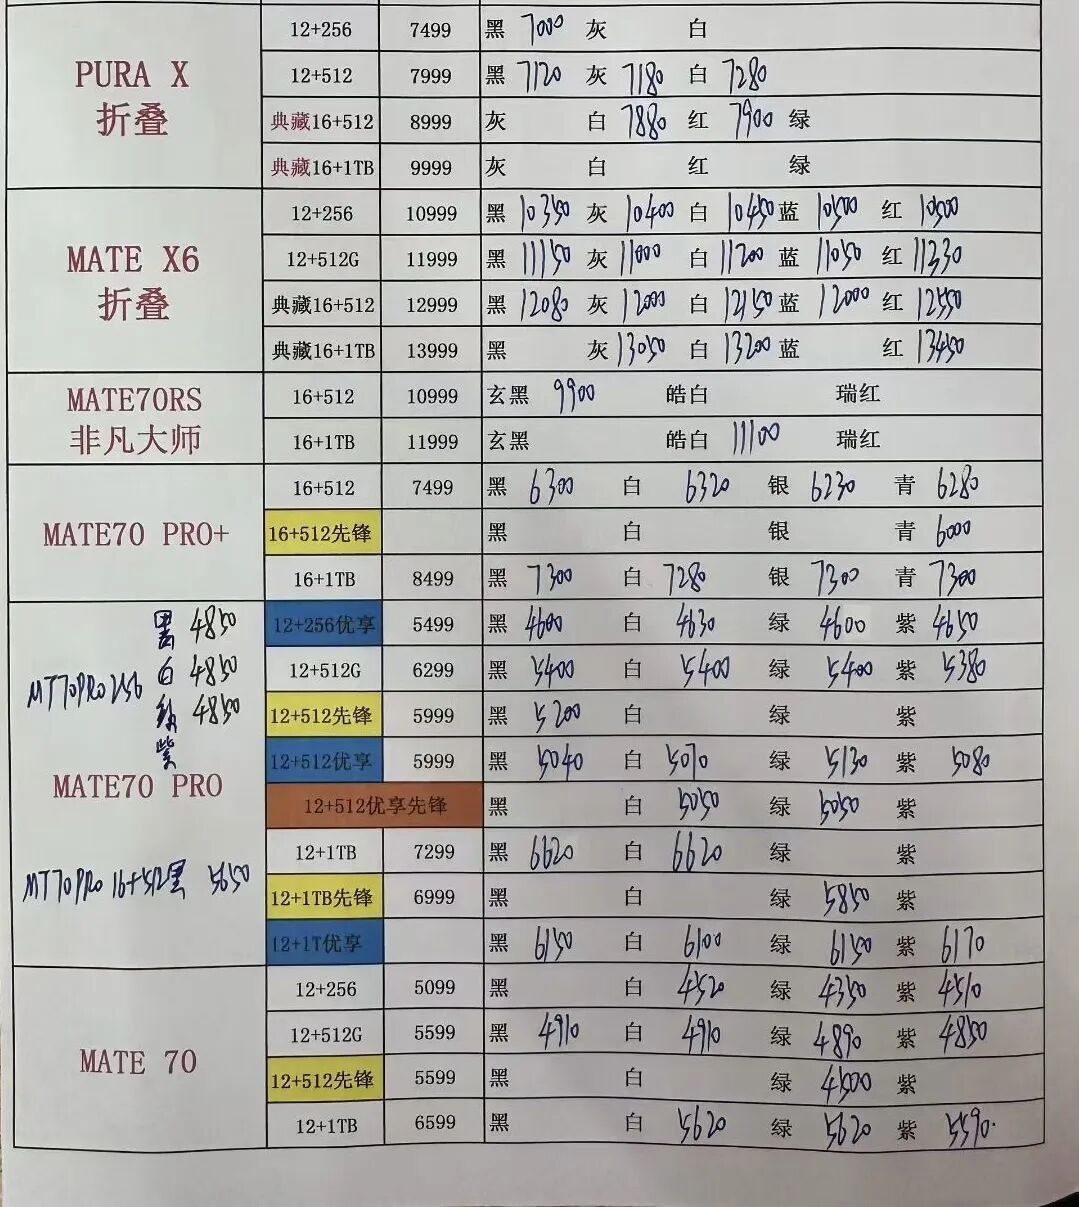 12+256 7499 黑 7000 灰 白
PURA X
折叠
12+512 7999 黑 7120 灰 7180 白 7280
典藏16+512 8999 灰 白 7880 红 7900 绿
典藏16+1TB 9999 灰 白 红 绿
MATE X6
折叠
12+256 10999 黑 10350 灰 10400 白 10450 蓝 10500 红 10500
12+512G 11999 黑 11150 灰 11000 白 11200 蓝 11050 红 11330
典藏16+512 12999 黑 12080 灰 12000 白 12150 蓝 12000 红 12550
典藏16+1TB 13999 黑 灰 13050 白 13200 蓝 红 13450
MATE70RS
非凡大师
16+512 10999 玄黑 9900 皓白 瑞红
16+1TB 11999 玄黑 皓白 11100 瑞红
MATE70 PRO+
16+512 7499 黑 6300 白 6320 银 6230 青 6280
16+512先锋 黑 白 银 青 6000
16+1TB 8499 黑 7300 白 7280 银 7300 青 7300
MT70PRO 256
黑 4850
白 4850
绿 4850
紫
MATE70 PRO
MT70PRO 16+512黑 5650
12+256优享 5499 黑 4600 白 4630 绿 4600 紫 4650
12+512G 6299 黑 5400 白 5400 绿 5400 紫 5380
12+512先锋 5999 黑 5200 白 绿 紫
12+512优享 5999 黑 5040 白 5070 绿 5130 紫 5080
12+512优享先锋 黑 白 5050 绿 5050 紫
12+1TB 7299 黑 6620 白 6620 绿 紫
12+1TB先锋 6999 黑 白 绿 5850 紫
12+1T优享 黑 6150 白 6100 绿 6150 紫 6170
MATE 70
12+256 5099 黑 白 4520 绿 4350 紫 4510
12+512G 5599 黑 4910 白 4910 绿 4890 紫 4850
12+512先锋 5599 黑 白 绿 4500 紫
12+1TB 6599 黑 白 5620 绿 5620 紫 5590